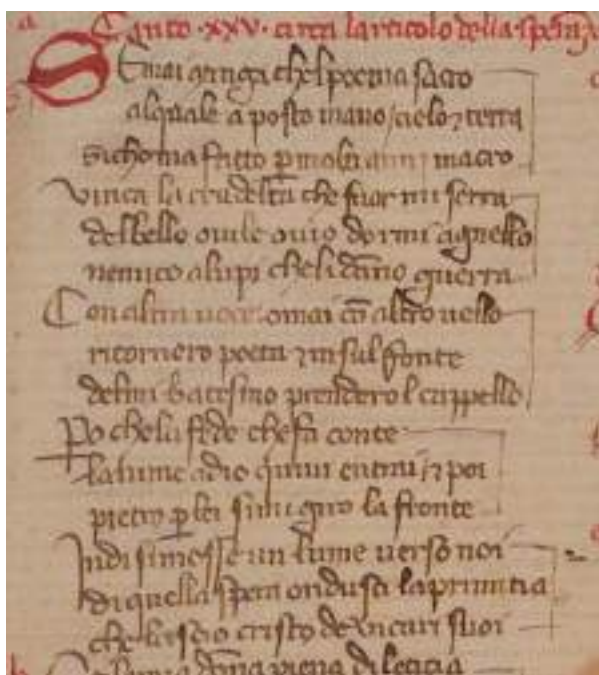 Canto ·xxv· circa larticolo della spen̄za
Se mai gunga chel poema sacro
alquale a posto mano / cielo ⁊ terra
sicho ma facto ꝑ molti anni macro
vinca la crudelta che fuor mi serra
del bello ouile ouio dormi agnello
nemico a lupi cheli dāno guerra
Con altra uoce omai cō altro uello
ritornero poeta ⁊ in sul fonte
del mi batesmo prendero l cappello
Po che la fede che fa conte
lanime a dio quiui entrai ⁊ poi
pietro ꝑ lei si mi giro la fronte
Indi si mosse un lume uerso noi
di quella spera ondusci la primitia
che lascio cristo de uicari suoi
piena di leticia